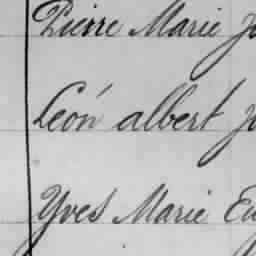 Pierre Marie
Léon albert
Yves Marie